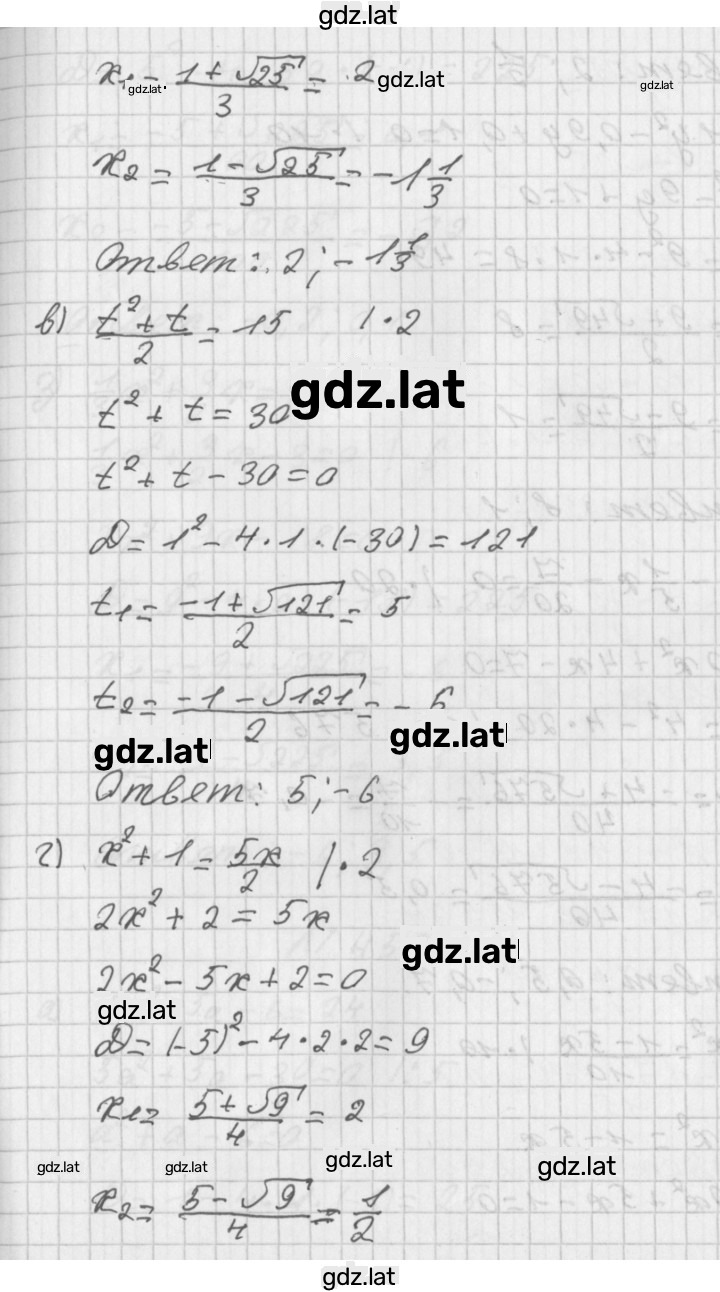 gdz.lat
x₁ = (1 + √25)/3 = 2 gdz.lat
gdz.lat gdz.lat
x₂ = (1 - √25)/3 = -1 1/3
Ответ: 2; -1 1/3
в) (t² + t)/2 = 15 | · 2
gdz.lat
t² + t = 30
t² + t - 30 = 0
D = 1² - 4 · 1 · (-30) = 121
t₁ = (-1 + √121)/2 = 5
t₂ = (-1 - √121)/2 = -
gdz.lat gdz.lat
Ответ: 5; -6
г) x² + 1 = 5x/2 | · 2
2x² + 2 = 5x
gdz.lat
2x² - 5x + 2 = 0
gdz.lat
D = (-5)² - 4 · 2 · 2 = 9
x₁ = (5 + √9)/4 = 2
gdz.lat gdz.lat gdz.lat gdz.lat
x₂ = (5 - √9)/4 = 1/2
gdz.lat